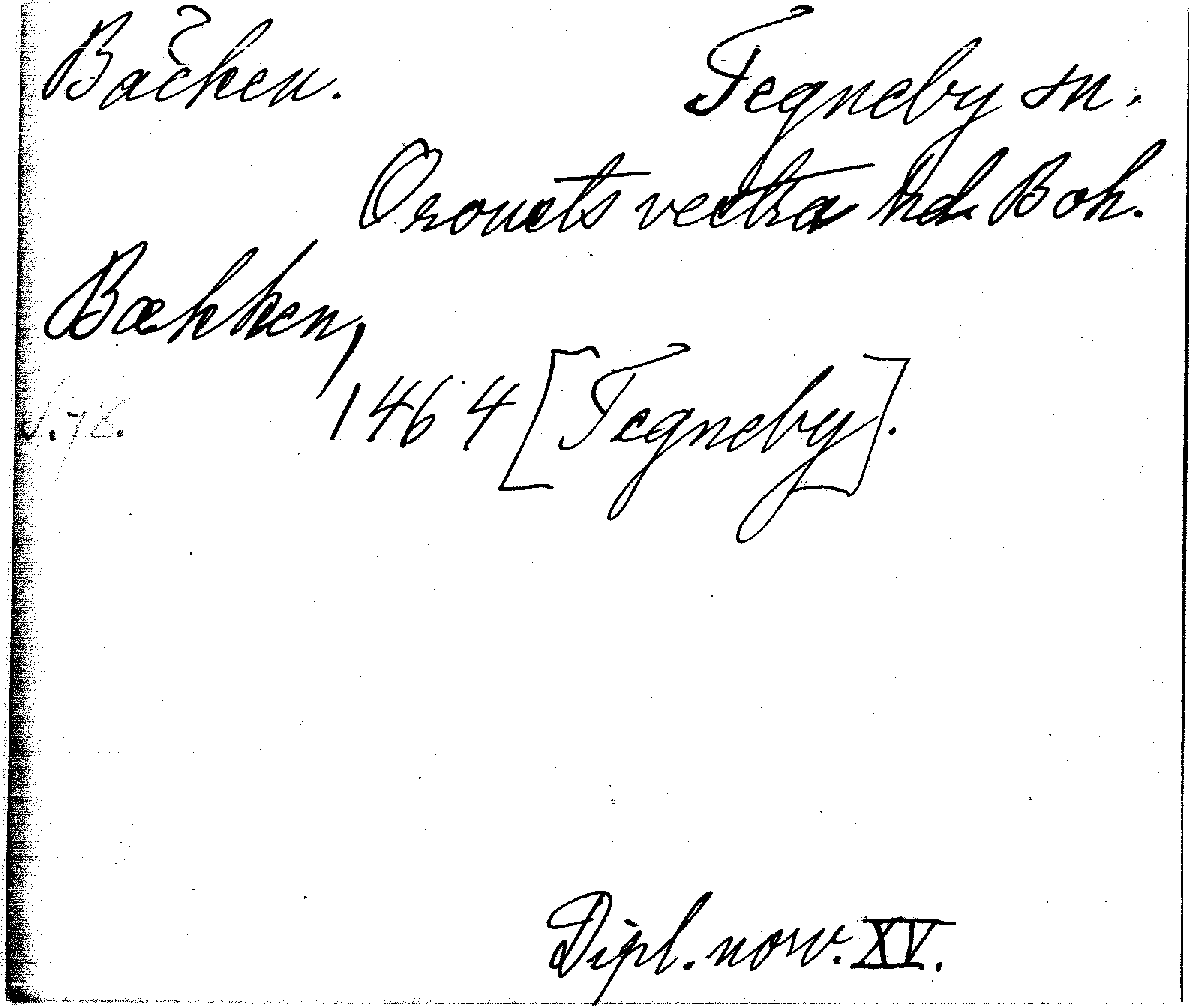 Bäcken. Tegneby sn.
Orousts vestra hd. Boh.
Bækken,
S. 78. 1464 [Tegneby].
Dipl. norv. XV.